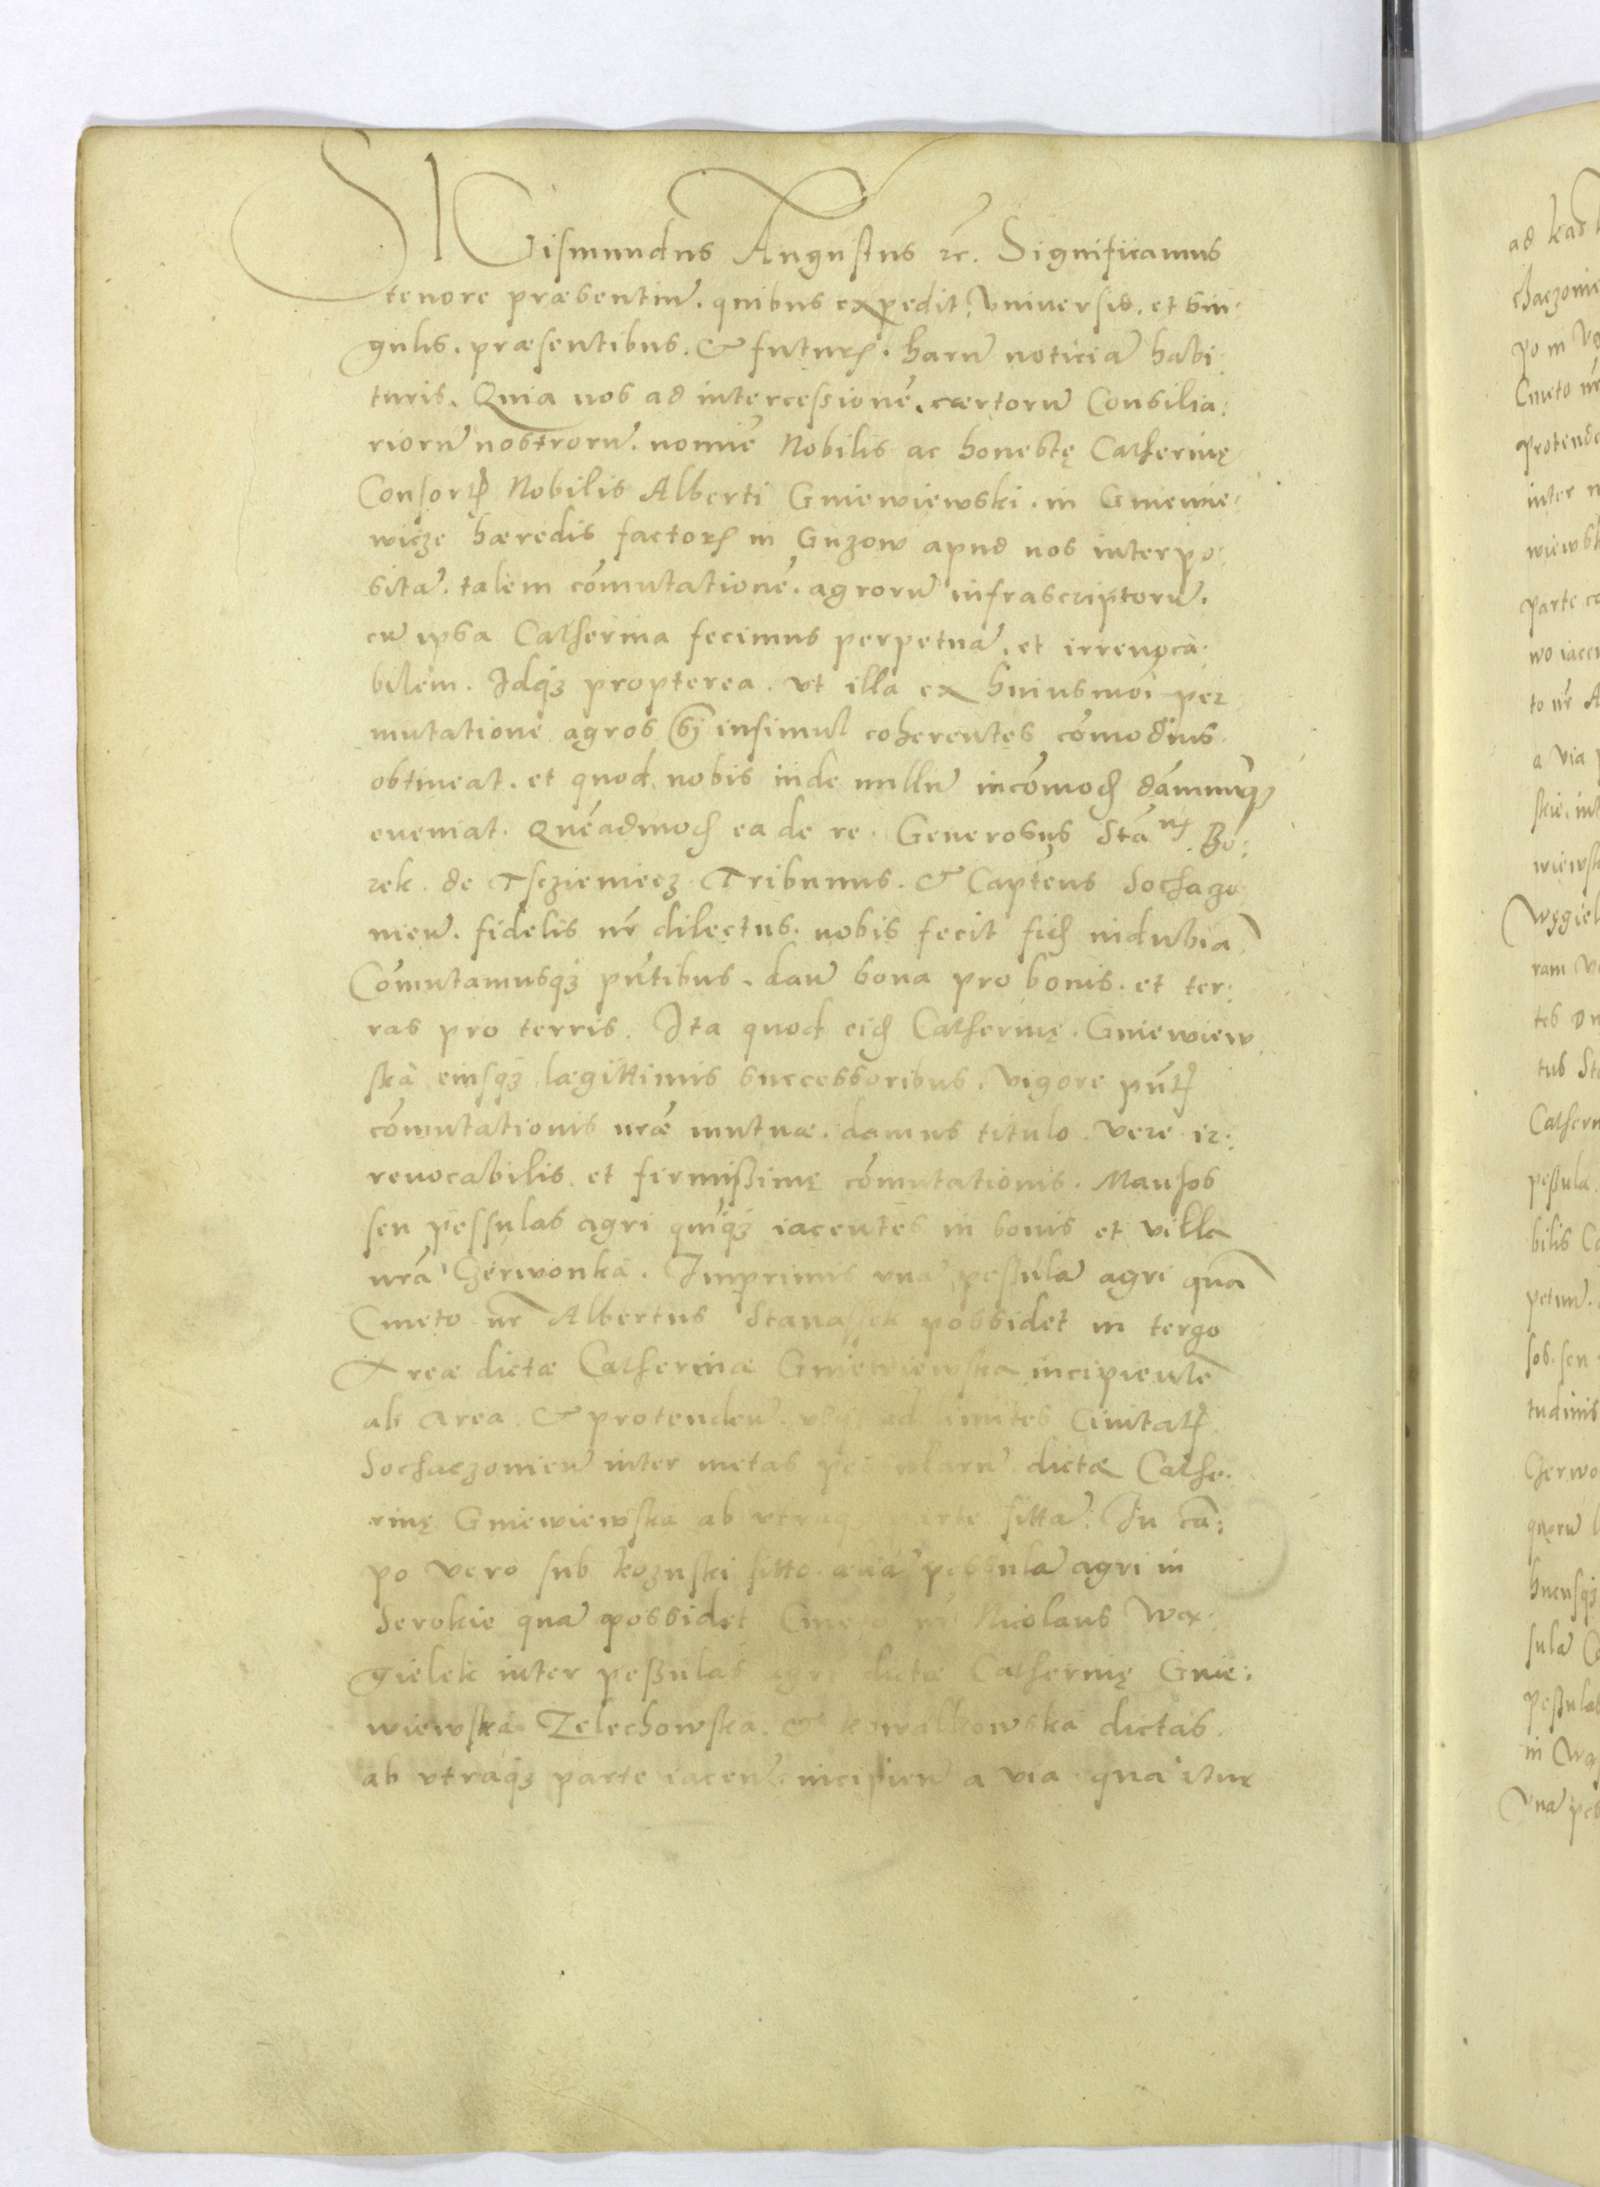 SIGismundus Augustus rc. Significamus
tenore præsentiū. quibus expedit, Vniuersis. et sin:
gulis. præsentibus. & futuris. harū noticiā habi:
turis. Quia nos ad intercessionē. cærtorū Consilia:
riorū nostrorū. nomīe Nobilis ac honestę Catherinę
Consortis Nobilis Alberti Gniewiewski. in Gniewie:
wicze hæredis factoris in Guzow apud nos interpo:
sitā. talem cōmutationē. agrorū infrascriptorū.
cū ipsa Catherina fecimus perpetuā. et irreuoca:
bilem. Idqȝ propterea. vt illa ex huiusmōi per
mutatione agros sibi insimul coherentes cōmodius
obtineat. et quod nobis inde nullū incōmodū damnūqȝ
eueniat. Quēadmodū ea de re. Generosus Stānus Bo:
rek. de Tscziemiecz Tribunus. & Captēus Sochaczo
nieū. fidelis nr̄ dilectus. nobis fecit fidē indubiā
Cōmutamusqȝ pn̄tibus. dan̄ bona pro bonis. et ter:
ras pro terris. Ita quod eidē Catherinę. Gniewiew
ska eiusqȝ lægittimis successoribus. vigore pn̄tis
cōmutationis nr̄æ mutuæ. damus titulo. veræ ir:
reuocabilis. et firmißimę cōmutationis. Mansos
seu pessulas agri quīqȝ iacentes in bonis et villa
nr̄a Czerwonka. Imprimis vnā peßulā agri quā
Cmeto nr̄ Albertus Stanassek possidet in tergo
Areæ dictæ Catherinæ Gniewiewska incipientē
ab area. & protendeñ. vsqȝ ad limites Ciuitatis
Sochaczouieñ inter metas peßularū dictæ Cathe:
rinę Gniewiewska ab vtraqȝ parte sittā. In cā:
po vero sub kozuski sitto. aliā pessulā agri in
Serokie quā possidet Cmeto nr̄ Nicolaus Wæ:
gielek inter peßulas agri dictæ Catherinę Gnie:
wiewska Zelechowska. & kowalkowska dictas.
ab vtraqȝ parte iaceñ. incipieñ a via qua itur